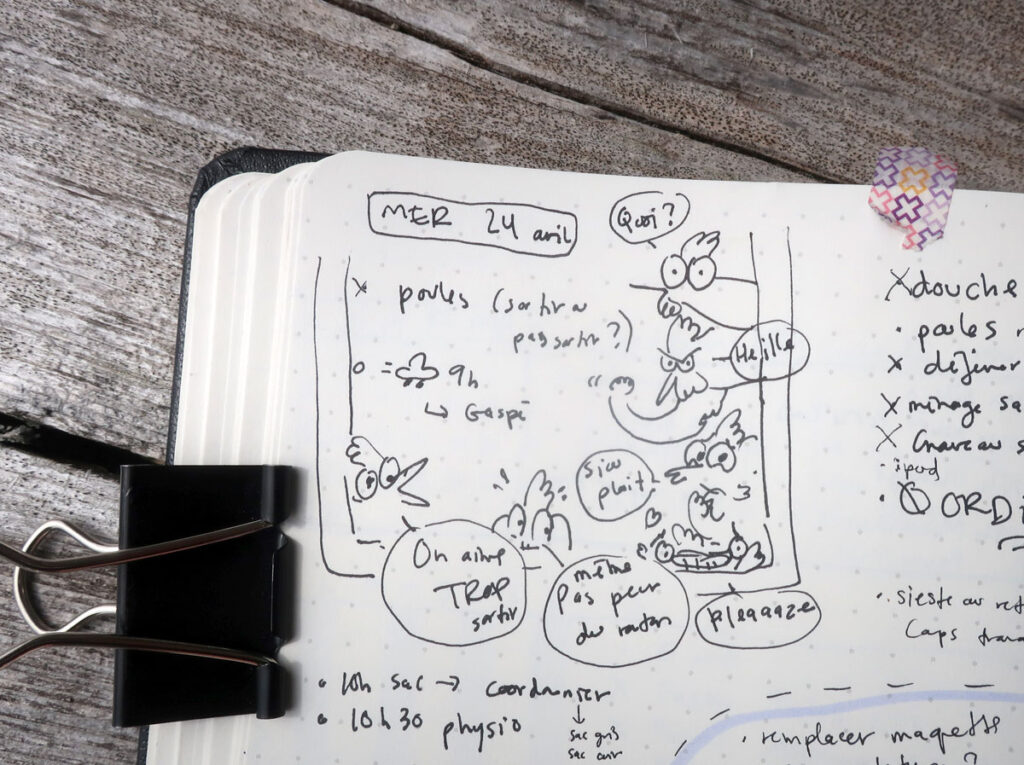 MER 24 avril
Quoi?
× poules (sortir ou
pas sortir?)
Heille
9h
↳ Gaspé
siou
plait
On aime
TROP
sortir
même
pas peur
du
pleaaaze
• 10h sac → cordonnier
• 10h30 physio
sac gris
sac cuir
× douche
• poules
× déjeuner
× ménage
×
• ipod
• ORD
• sieste au
Caps
• remplacer maquette